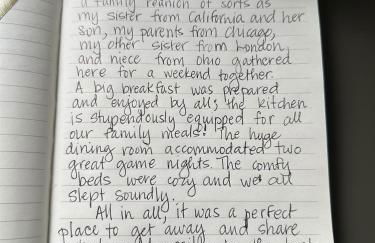 a family reunion of sorts as
my sister from California and her
son, my parents from Chicago,
my other sister from London,
and niece from Ohio gathered
here for a weekend together.
A big breakfast was prepared
and enjoyed by all; the kitchen
is stupendously equipped for all
our family meals! The huge
dining room accommodated two
great game nights. The comfy
beds were cozy and we all
slept soundly.
All in all, it was a perfect
place to get away and share